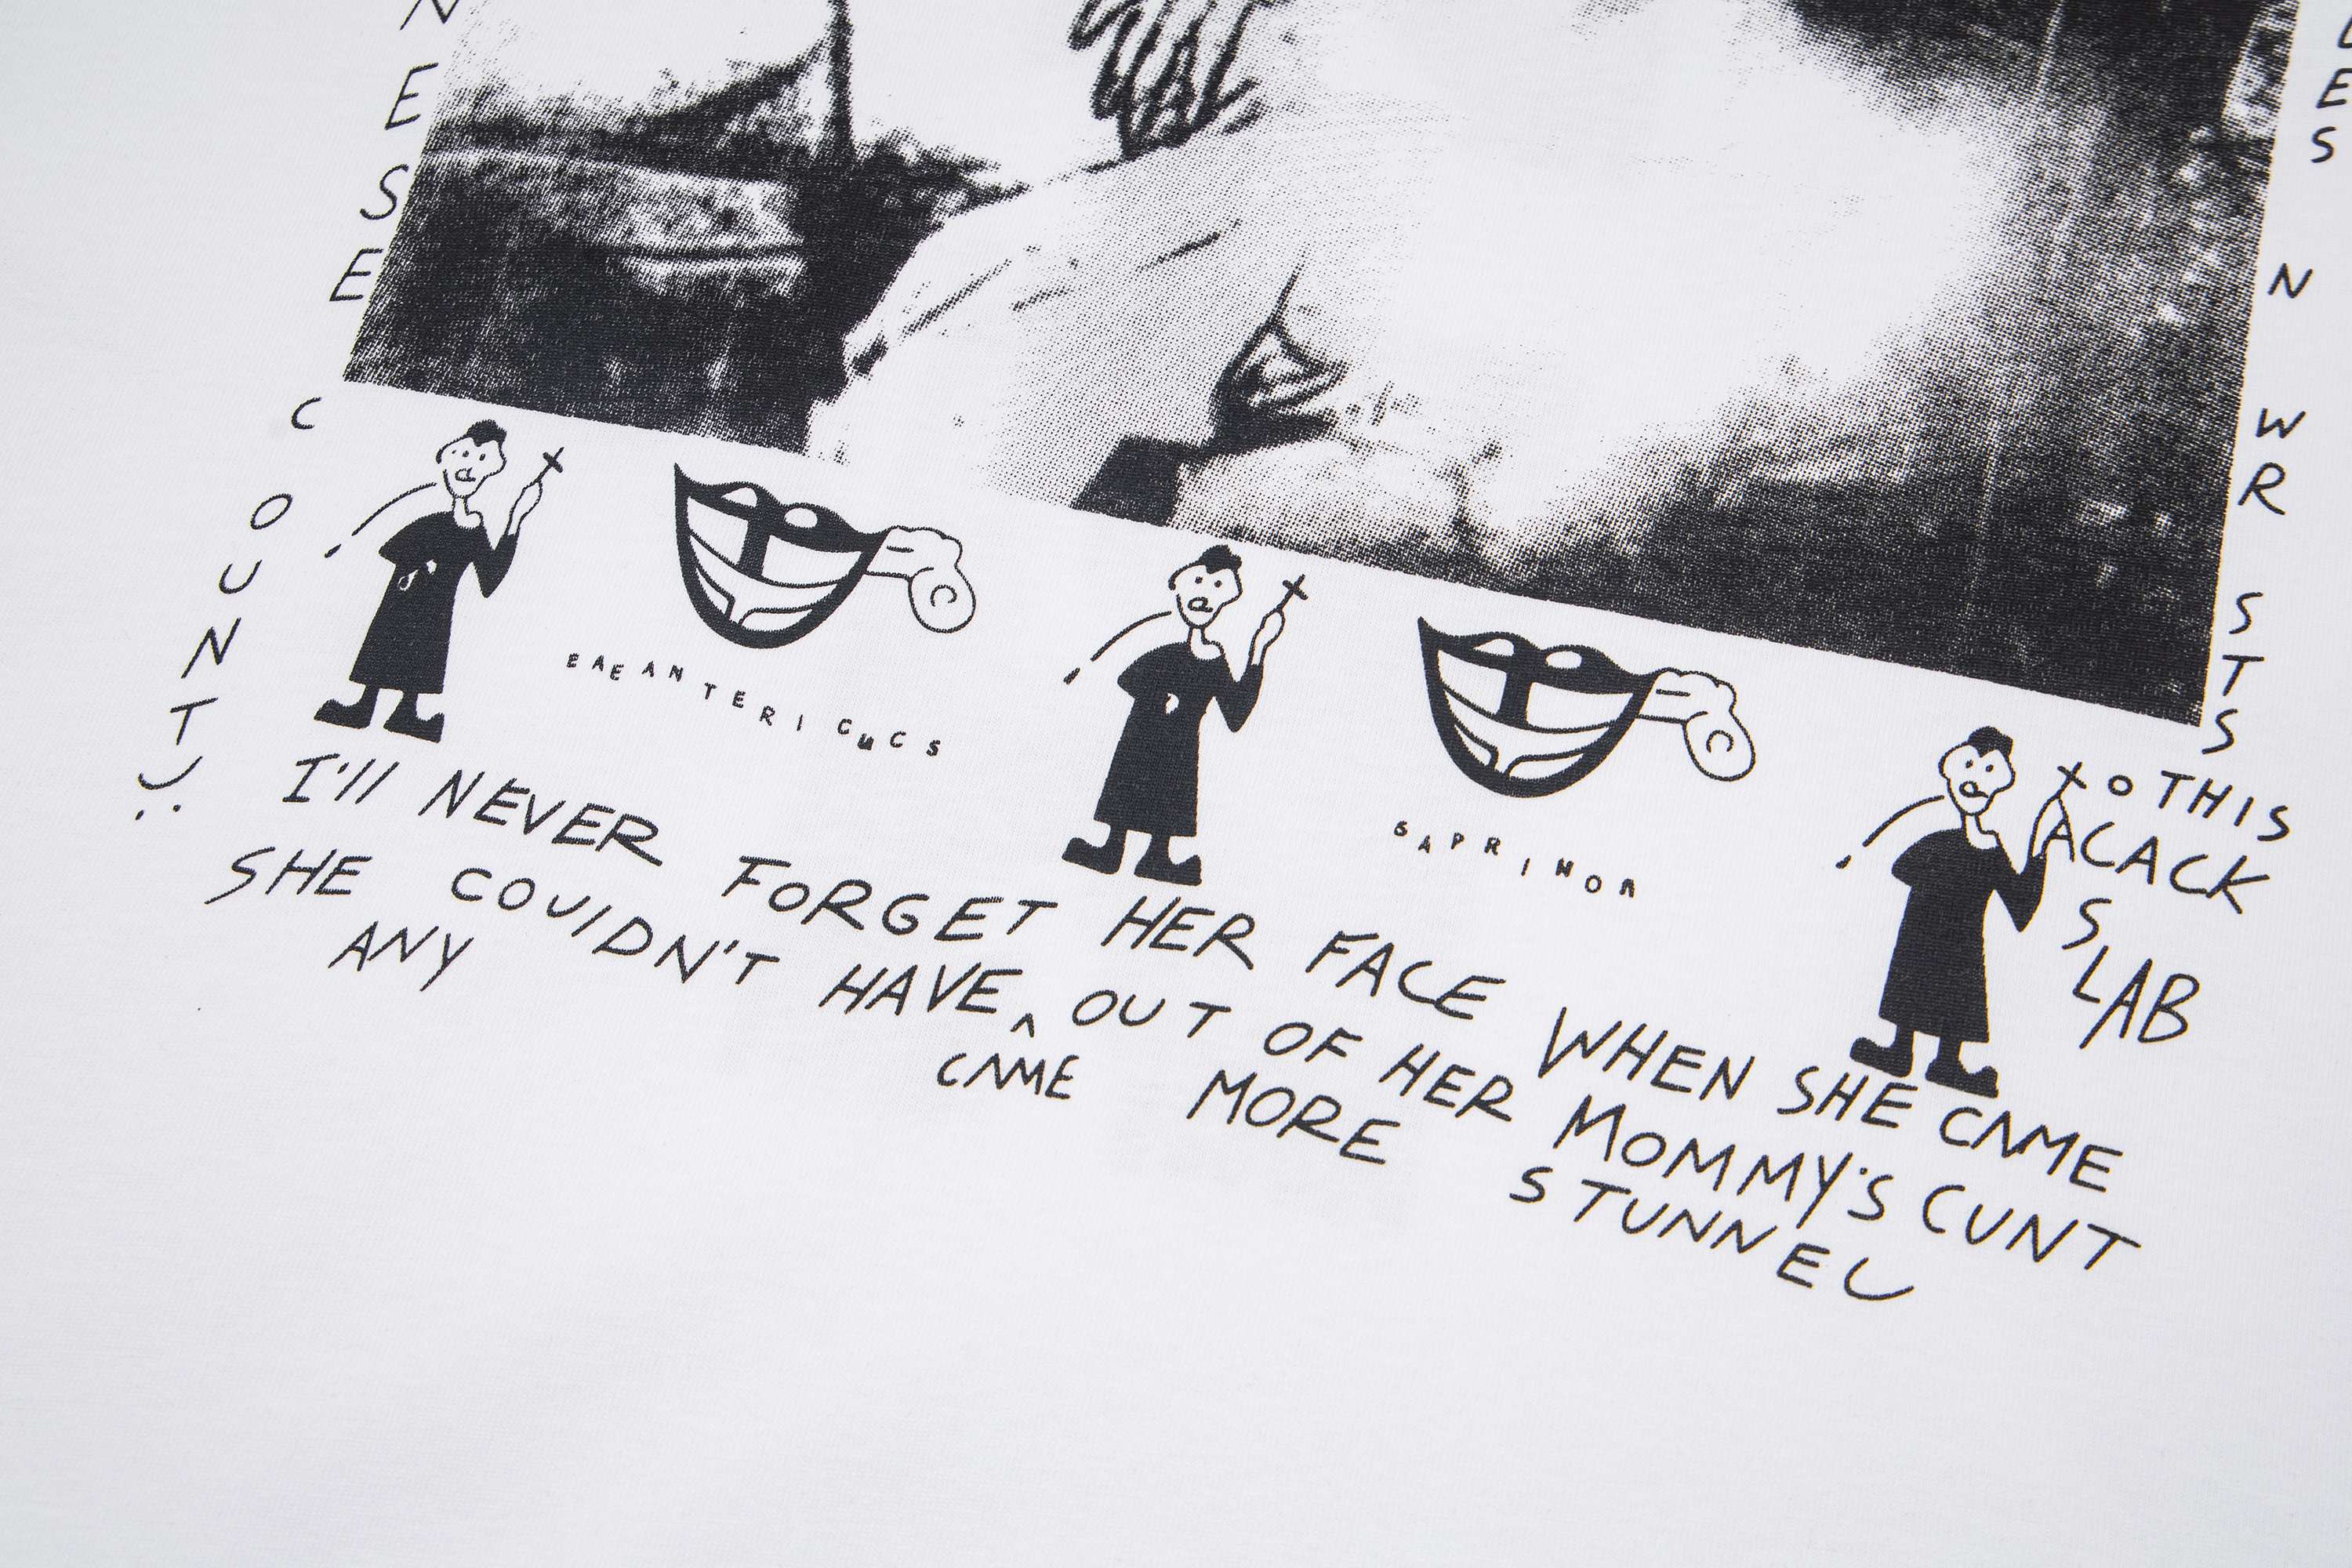 NESE
COUNT
LES
N
WR
STS
THIS
ACACK
SLAB
I'll NEVER FORGET HER FACE WHEN SHE CAME
SHE COULDN'T HAVE ^ OUT OF HER MOMMY'S CUNT
ANY CAME MORE STUNNEL